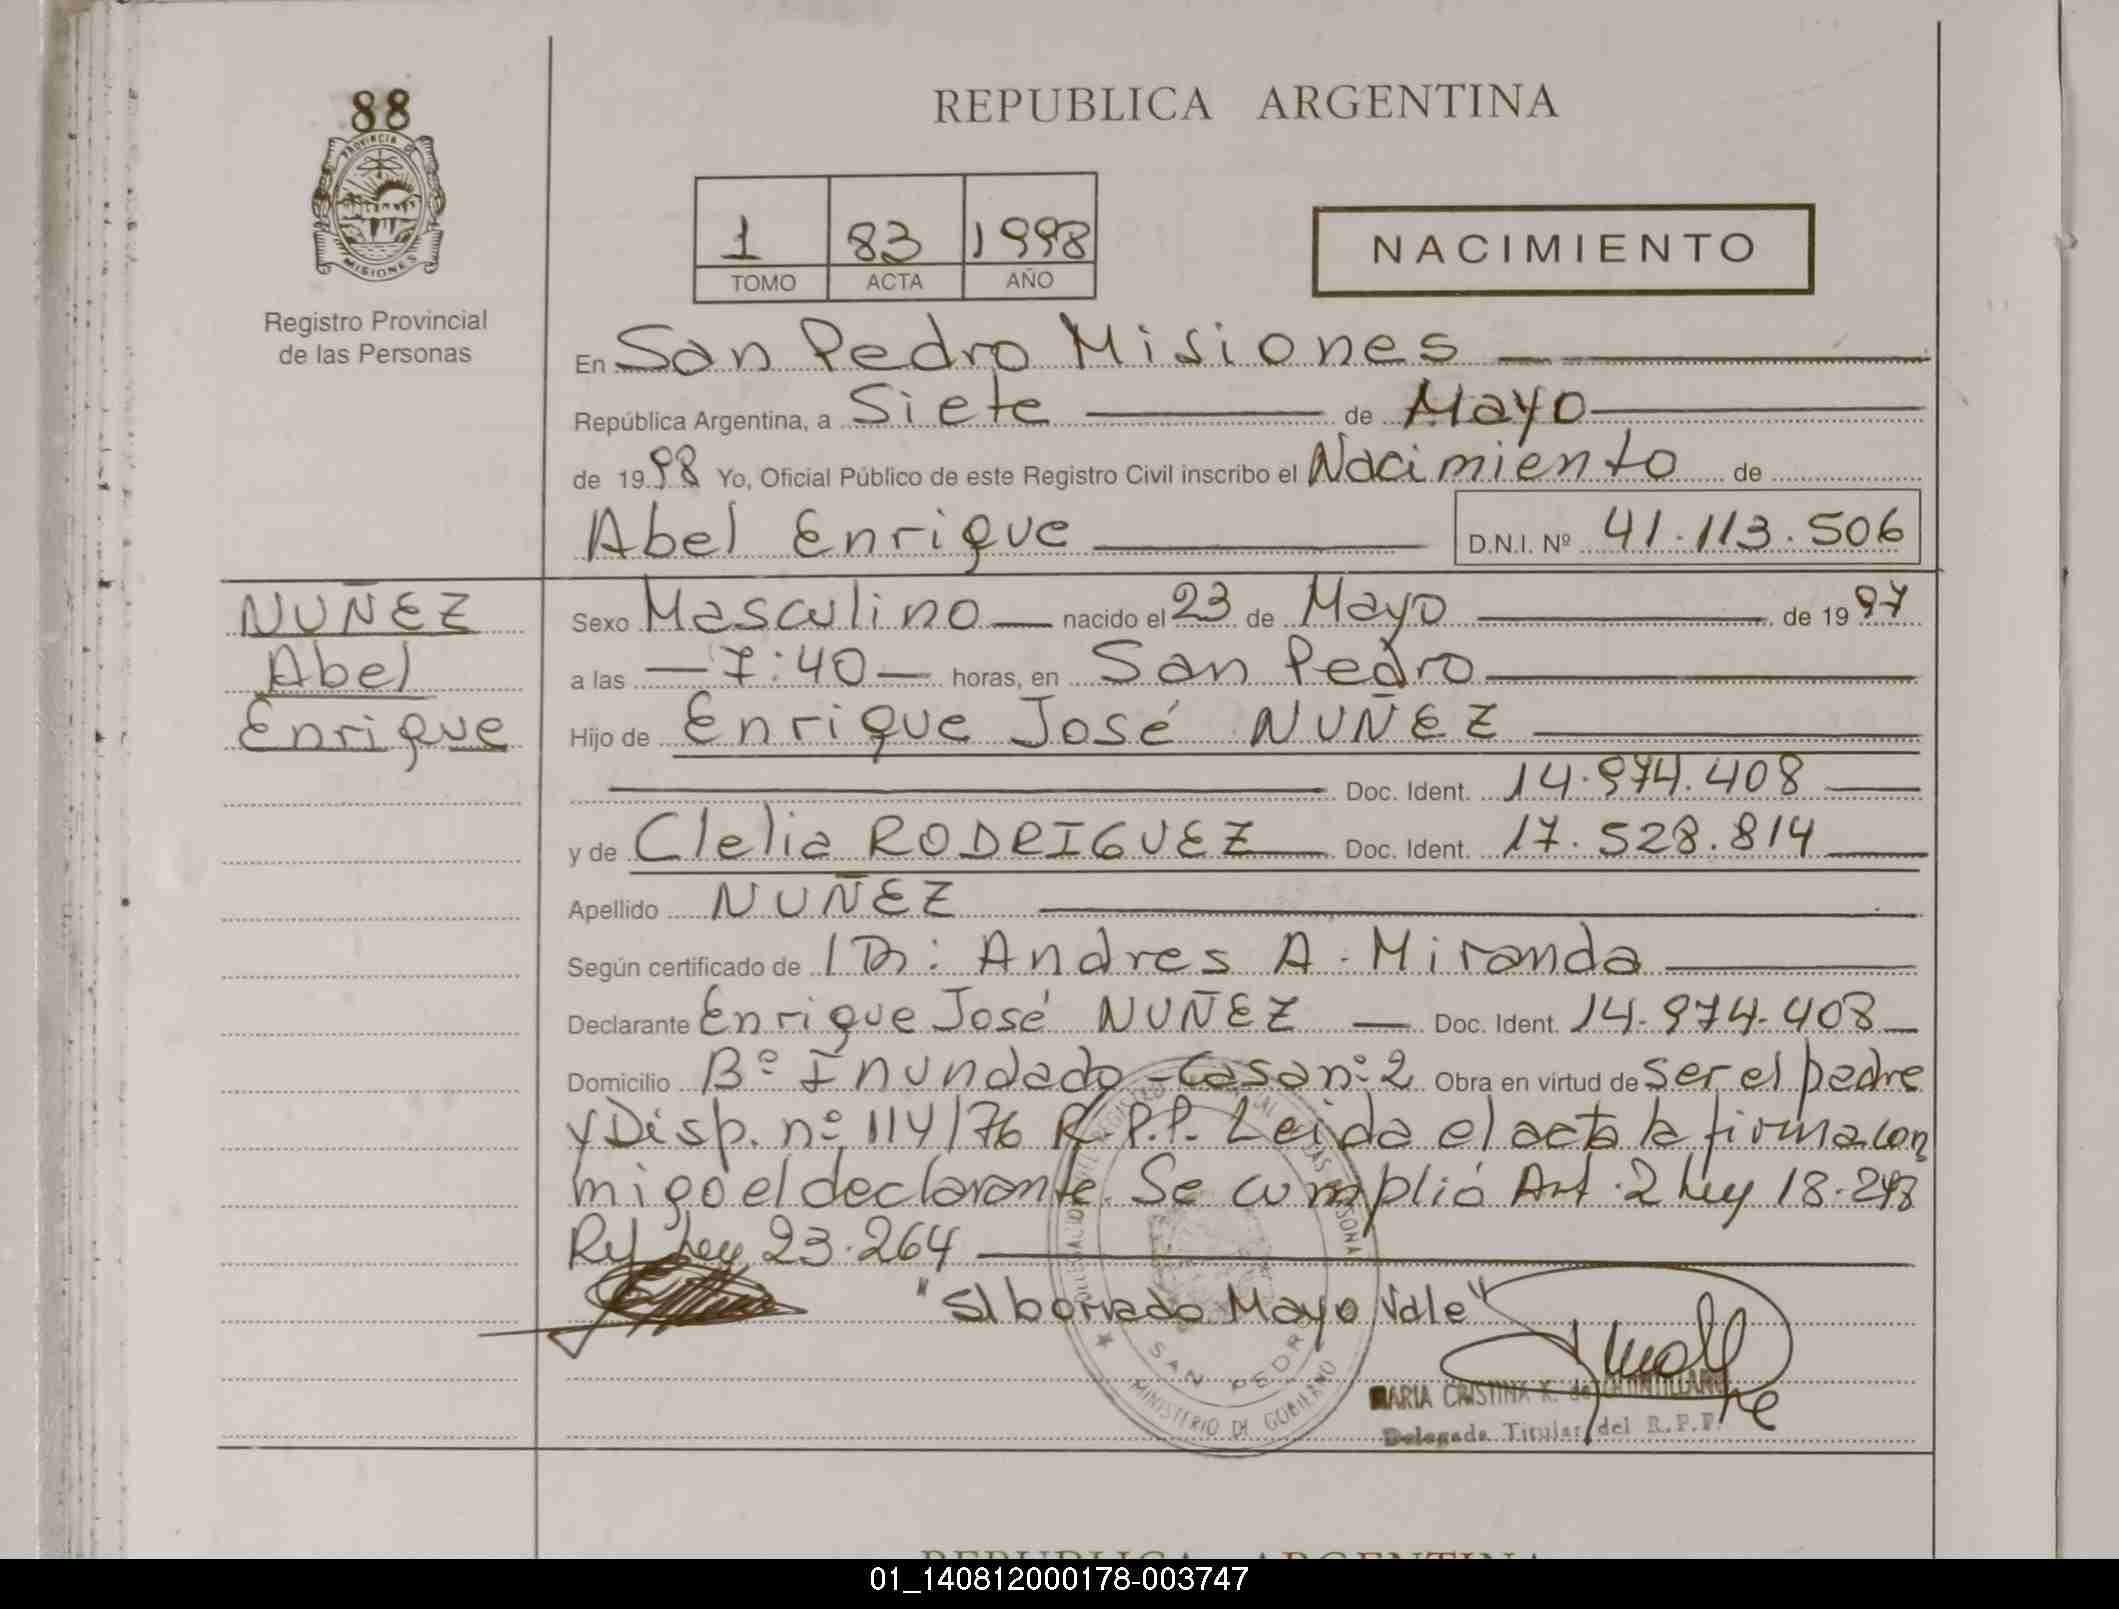 88
PROVINCIA DE
MISIONES
Registro Provincial
de las Personas
REPUBLICA ARGENTINA
1 83 1998
TOMO ACTA AÑO
NACIMIENTO
En San Pedro Misiones
República Argentina, a Siete de Mayo
de 1998 Yo, Oficial Público de este Registro Civil inscribo el Nacimiento de
Abel Enrique D.N.I. Nº 41.113.506
NUÑEZ
Abel
Enrique
Sexo Masculino nacido el 23 de Mayo de 1997
a las 7:40 horas, en San Pedro
Hijo de Enrique José NUÑEZ
Doc. Ident. 14.974.408
y de Clelia RODRIGUEZ Doc. Ident. 17.528.814
Apellido NUÑEZ
Según certificado de Dr: Andres A. Miranda
Declarante Enrique José NUÑEZ Doc. Ident. 14.974.408
Domicilio Bº Inundado - Casa nº 2 Obra en virtud de ser el padre
y Disp. nº 114/76 R.P.P. Leida el acta la firma con
migo el declarante. Se cumplió Art. 2 Ley 18.248
Ley 23.264
"S/borrado Mayo Vale"
SAN PEDRO
MINISTERIO DE GOBIERNO
MARIA CRISTINA K. de
Delegada Titular del R.P.P.
REPUBLICA ARGENTINA
01_140812000178-003747